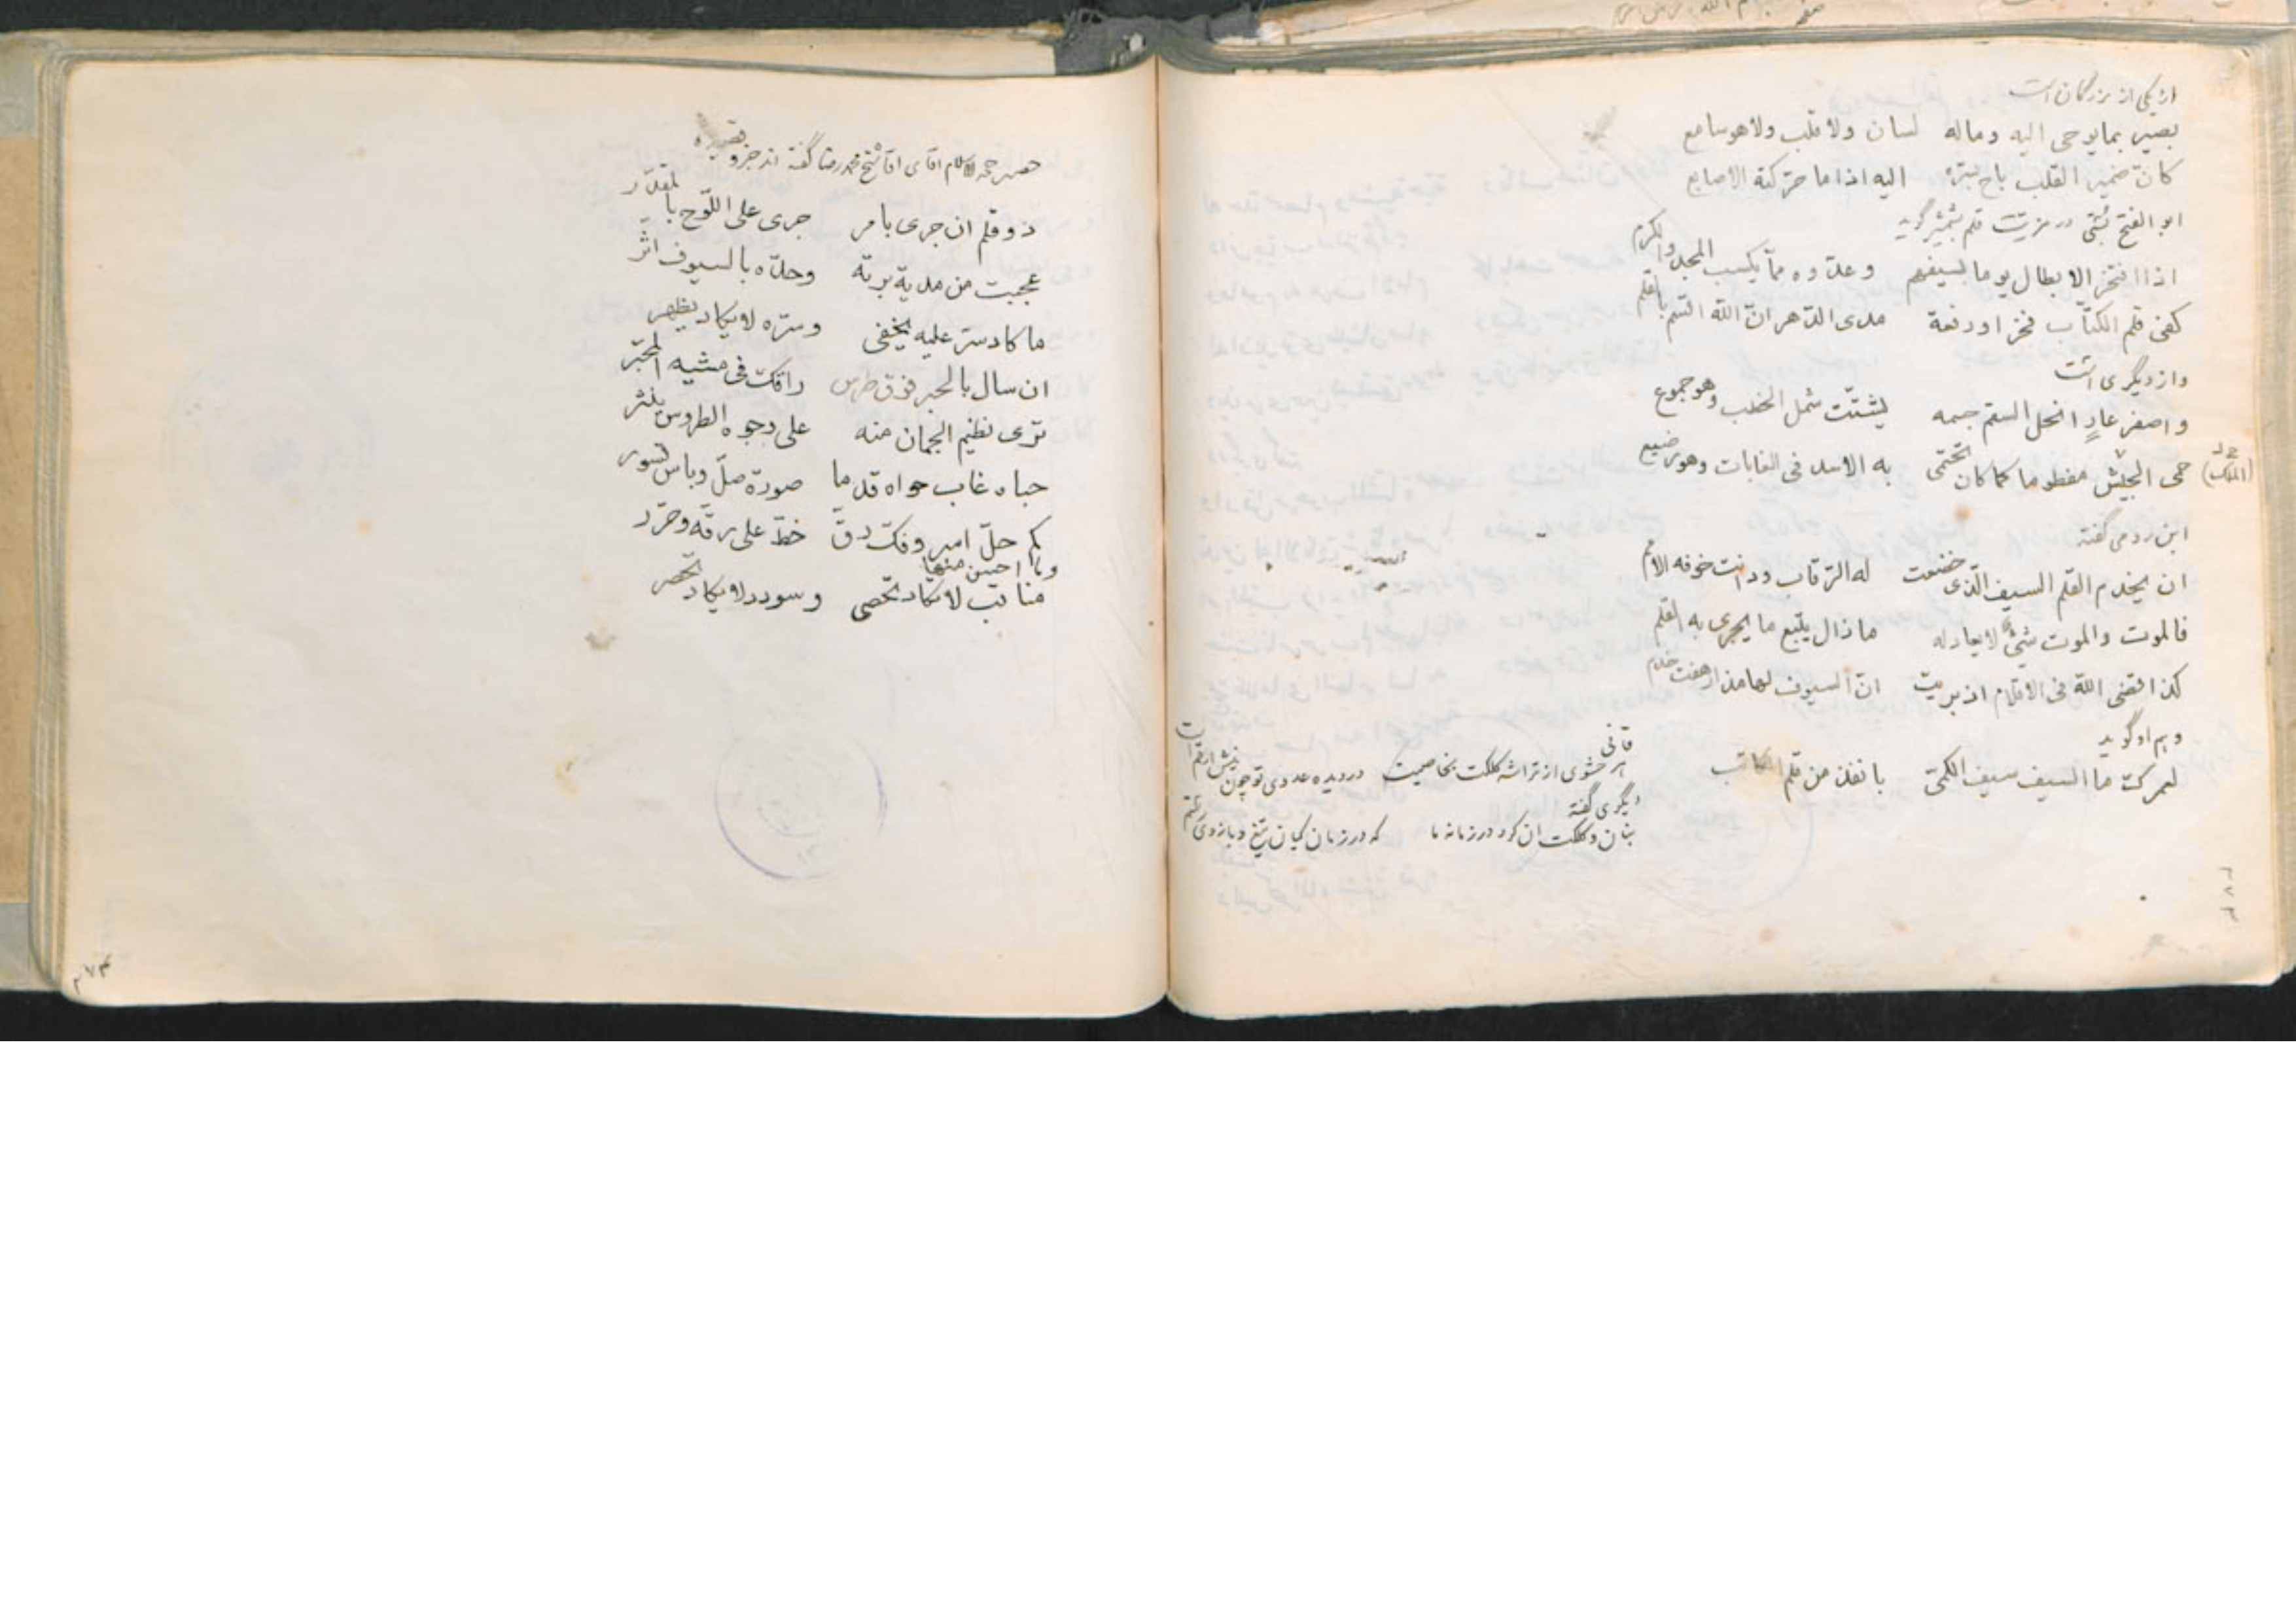 از یکی از بزرگان است
بصیر بما یوحی الیه وماله لسان ولا قلب ولا هو سامع
کانّ ضمیر القلب باح بسرّه الیه اذا ما حرّکته الاصابع
ابو الفتح بُستی در مزیت قلم بشمشیر گوید
اذا افتخر الابطال یوما بسیفهم وعدّوه ممّا یکسب المجد والکرم
کفی قلم الکتّاب فخرا ورفعة مدی الدّهر انّ الله اقسم بالقلم
واز دیگری است
واصفر عارٍ انحل السقم جسمه یشتّت شمل الخطب وهو جموع
حمی الجیش مفطوما کما کان تحتمی به الاسد فی الغابات وهو رضیع
(الملک)
ابن رومی گفته
ان یخدم القلم السیف الّذی خضعت له الرّقاب ودانت خوفه الامم
فالموت والموت شیءٌ لا یعادله ما زال یتبع ما یجری به القلم
کذا قضی الله فی الاقلام اذ بریت انّ السیوف لها مذ ارهفت خدم
وهم او گوید
لعمرک ما السیف سیف الکمیّ بانفذ من قلم الکاتب
قاآنی
هر حشوی از تراشه کلکت بخاصیت در دیده عدوی تو چون نیش ارقم است
دیگری گفته
بنان و کلکت آن کرد در زمانه ما که در زمان کیان تیغ و بازوی رستم
۲۷۳
حضرت حجة الاسلام اقای اقا شیخ محمد رضا گفته اند جزو قصیده
ذو قلم ان جری بامر جری علی اللّوح بالمقدّر
عجبت من مدیة برته وحدّه بالسیوف اثّر
ما کاد سرّ علیه یخفی وسرّه لا یکاد یظهر
ان سال بالحبر فوق طرس راقک فی مشیه المحبّر
تری نظیم الجمان منه علی وجوه الطروس ینثر
حباه غاب حواه قدما صورة صلّ وباس قسور
کم حلّ امر وفکّ رقّ خطّ علی رقّه وحرّر
وما احسن منها
مناقب لا تکاد تحصی وسودد لا یکاد یحصر
۲۷۴